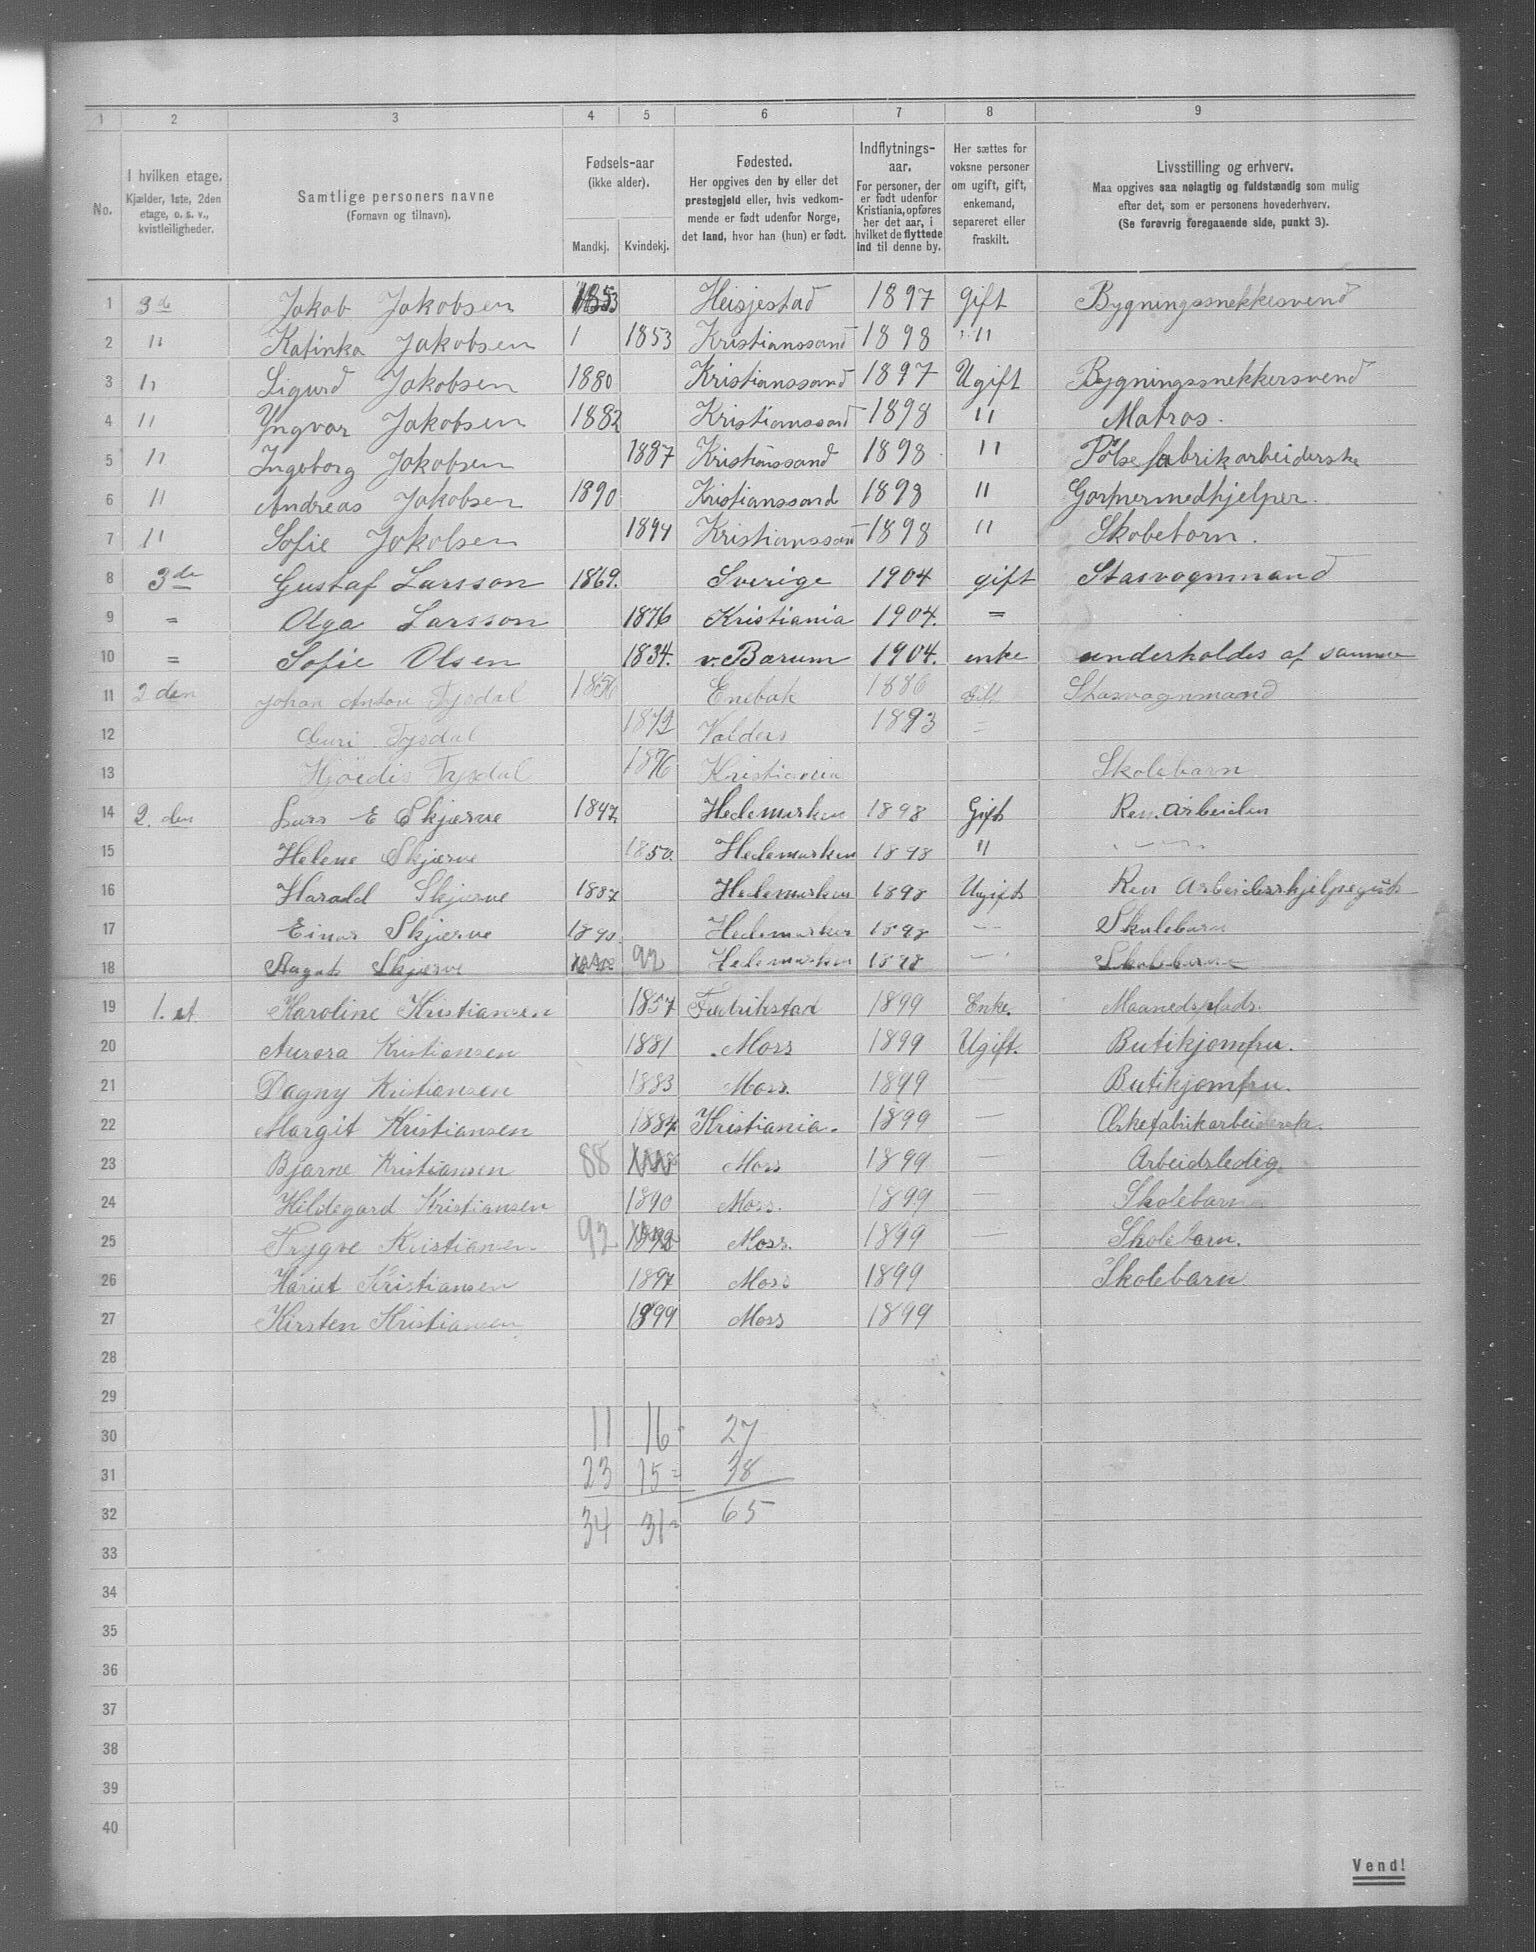 1 2 3 4 5 6 7 8 9
No.
I hvilken etage.
Kjælder, 1ste, 2den
etage, o. s. v.,
kvistleiligheder.
Samtlige personers navne
(Fornavn og tilnavn).
Fødsels-aar
(ikke alder).
Mandkj. Kvindekj.
Fødested.
Her opgives den by eller det
prestegjeld eller, hvis vedkom-
mende er født udenfor Norge,
det land, hvor han (hun) er født.
Indflytnings-
aar.
For personer, der
er født udenfor
Kristiania, opføres
her det aar, i
hvilket de flyttede
ind til denne by.
Her sættes for
voksne personer
om ugift, gift,
enkemand,
separeret eller
fraskilt.
Livsstilling og erhverv.
Maa opgives saa nøiagtig og fuldstændig som mulig
efter det, som er personens hovederhverv.
(Se forøvrig foregaaende side, punkt 3).
1 3de Jakob Jakobsen 1853 Heisjestad 1897 gift Bygningssnekkesvend
2 " Katinka Jakobsen 1 1853 Kristianssand 1898 "
3 " Sigurd Jakobsen 1880 Kristianssand 1897 Ugift Bygningssnekkersvend
4 " Yngvar Jakobsen 1882 Kristianssand 1898 " Matros.
5 " Ingeborg Jakobsen 1887 Kristianssand 1898 " Pølsefabrikarbeiderske
6 " Andreas Jakobsen 1890 Kristianssand 1898 " Gartnermedhjelper.
7 " Sofie Jakobsen 1894 Kristianssan 1898 " Skobetorn.
8 3de Gustaf Larsson 1869. Sverige 1904 gift Stasvognmand
9 = Olga Larsson 1876 Kristiania 1904. =
10 = Sofie Olsen 1834. v. Barum 1904. enke underholdes af samme
11 2den Johan Anton Tysdal 1856 Enebak 1886 Gift Stasvognmand
12 Guri Tysdal 1872 Valders 1893 =
13 Hjördis Tysdal 1896 Kristiania Skolebarn
14 2. den Lars E Skjerve 1847 Hedemarken 1898 Gift Ren. Arbeider
15 Helene Skjerve 1850. Hedemarken 1898 "
16 Harald Skjerve 1887 Hedemarken 1898 Ugift Ren Arbeiderhjelpegut
17 Einar Skjerve 1890 Hedemarken 1898 — Skolebarn
18 Aagot Skjerve 92 Hedemarken 1898 — Skolebarn
19 1. et Karoline Kristiansen 1857 Fredrikstad 1899 Enke. Maanedsplads.
20 Aurora Kristiansen 1881 Moss 1899 Ugift. Butikjomfru.
21 Dagny Kristiansen 1883 Moss. 1899 — Butikjomfru.
22 Margit Kristiansen 1884 Kristiania. 1899 — Æskefabrikarbeidersk.
23 Bjarne Kristiansen 88 Moss 1899 — Arbeidsledig
24 Hildegard Kristiansen 1890 Moss. 1899 — Skolebarn
25 Trygve Kristiansen 92 1892 Moss. 1899 — Skolebarn.
26 Hariet Kristiansen 1897 Moss 1899 Skolebarn
27 Kirsten Kristiansen 1899 Moss 1899
28
29
30 11 16 - 27
31 23 15 = 38
32 34 31 = 65
33
34
35
36
37
38
39
40
Vend!